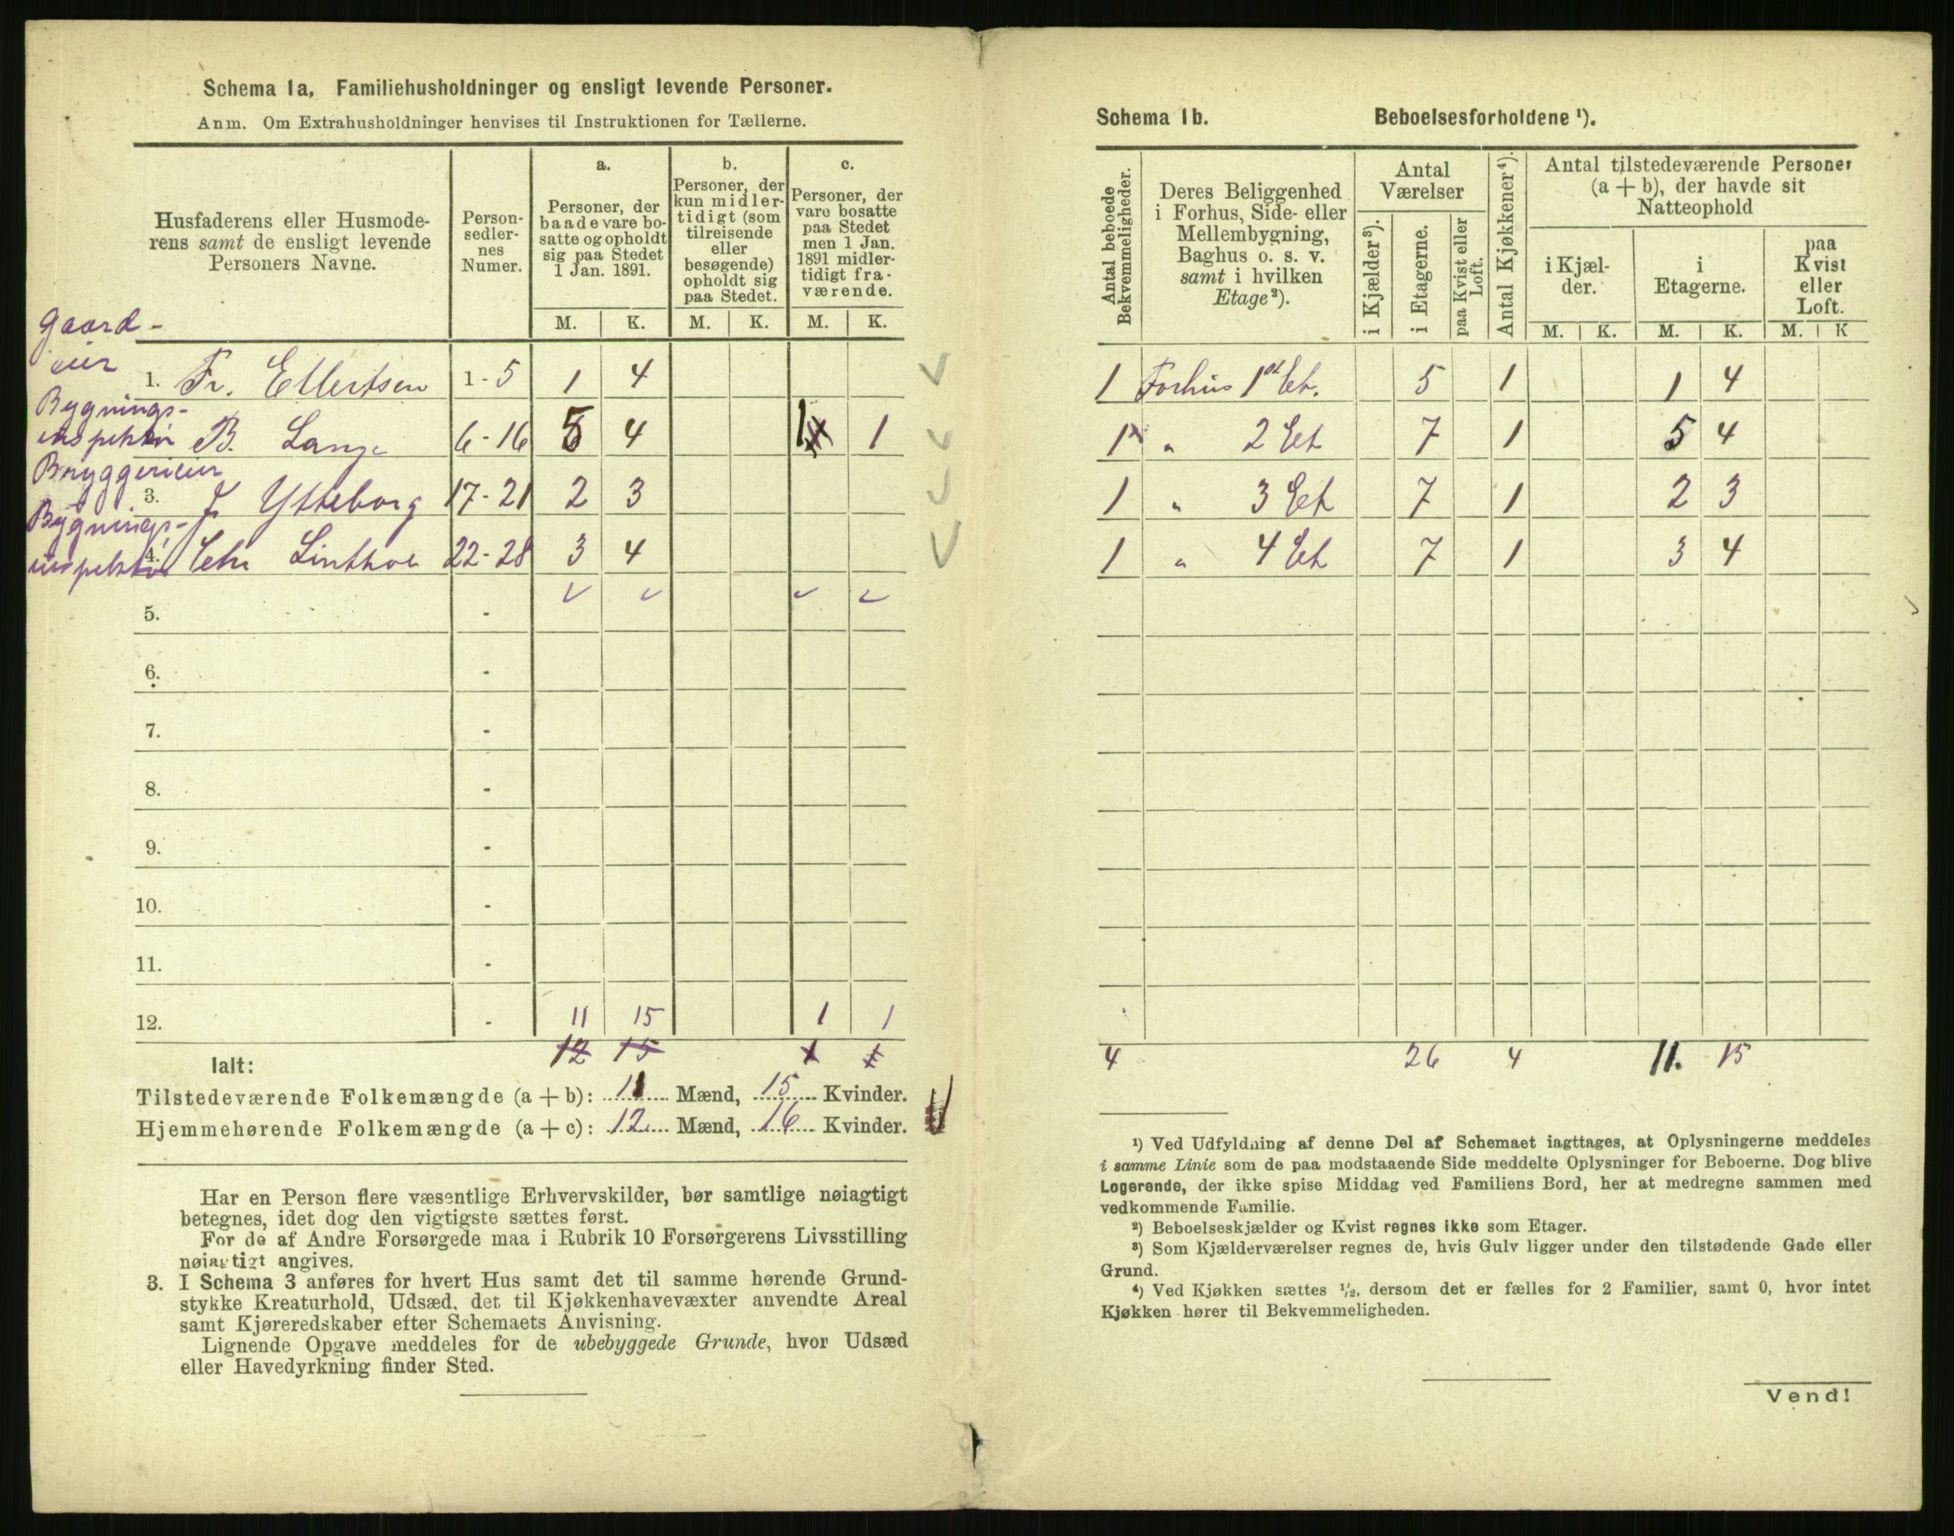 Schema 1a, Familiehusholdninger og ensligt levende Personer.
Anm. Om Extrahusholdninger henvises til Instruktionen for Tællerne.
Husfaderens eller Husmode-
rens samt de ensligt levende
Personers Navne.
Person-
sedler-
nes
Numer.
a.
Personer, der
baade vare bo-
satte og opholdt
sig paa Stedet
1 Jan. 1891.
b.
Personer, der
kun midler-
tidigt (som
tilreisende
eller
besøgende)
opholdt sig
paa Stedet.
c.
Personer, der
vare bosatte
paa Stedet
men 1 Jan.
1891 midler-
tidigt fra-
værende.
M. K. M. K. M. K.
Gaard-
eier
1. Fr. Ellertsen 1-5 1 4
Bygnings-
inspektør B. Lange 6-16 5 4 1 1
Bryggerieier
3. J. Ytteborg 17-21 2 3
Bygnings-
inspektør 4. Chr Linthoe 22-28 3 4
5. -
6. -
7. -
8. -
9. -
10. -
11. -
12. - 11 15 1 1
Ialt: 12 15 1 1
Tilstedeværende Folkemængde (a + b): 11 Mænd, 15 Kvinder.
Hjemmehørende Folkemængde (a + c): 12 Mænd, 16 Kvinder.
Har en Person flere væsentlige Erhvervskilder, bør samtlige nøiagtigt
betegnes, idet dog den vigtigste sættes først.
For de af Andre Forsørgede maa i Rubrik 10 Forsørgerens Livsstilling
nøiagtigt angives.
3. I Schema 3 anføres for hvert Hus samt det til samme hørende Grund-
stykke Kreaturhold, Udsæd, det til Kjøkkenhavevæxter anvendte Areal
samt Kjøreredskaber efter Schemaets Anvisning.
Lignende Opgave meddeles for de ubebyggede Grunde, hvor Udsæd
eller Havedyrkning finder Sted.
Schema 1b. Beboelsesforholdene ¹).
Antal beboede
Bekvemmeligheder.
Deres Beliggenhed
i Forhus, Side- eller
Mellembygning,
Baghus o. s. v.
samt i hvilken
Etage²).
Antal
Værelser
i Kjælder³).
i Etagerne.
paa Kvist eller
Loft.
Antal Kjøkkener⁴).
Antal tilstedeværende Personer
(a + b), der havde sit
Natteophold
i Kjæl-
der.
i
Etagerne.
paa
Kvist
eller
Loft.
M. K. M. K. M. K
1 Forhus 1st Et. 5 1 1 4
1 " 2 Et 7 1 5 4
1 " 3 Et 7 1 2 3
1 " 4 Et 7 1 3 4
4 26 4 11. 15
¹) Ved Udfyldning af denne Del af Schemaet iagttages, at Oplysningerne meddeles
i samme Linie som de paa modstaaende Side meddelte Oplysninger for Beboerne. Dog blive
Logerende, der ikke spise Middag ved Familiens Bord, her at medregne sammen med
vedkommende Familie.
²) Beboelseskjælder og Kvist regnes ikke som Etager.
³) Som Kjælderværelser regnes de, hvis Gulv ligger under den tilstødende Gade eller
Grund.
⁴) Ved Kjøkken sættes ½, dersom det er fælles for 2 Familier, samt 0, hvor intet
Kjøkken hører til Bekvemmeligheden.
Vend!